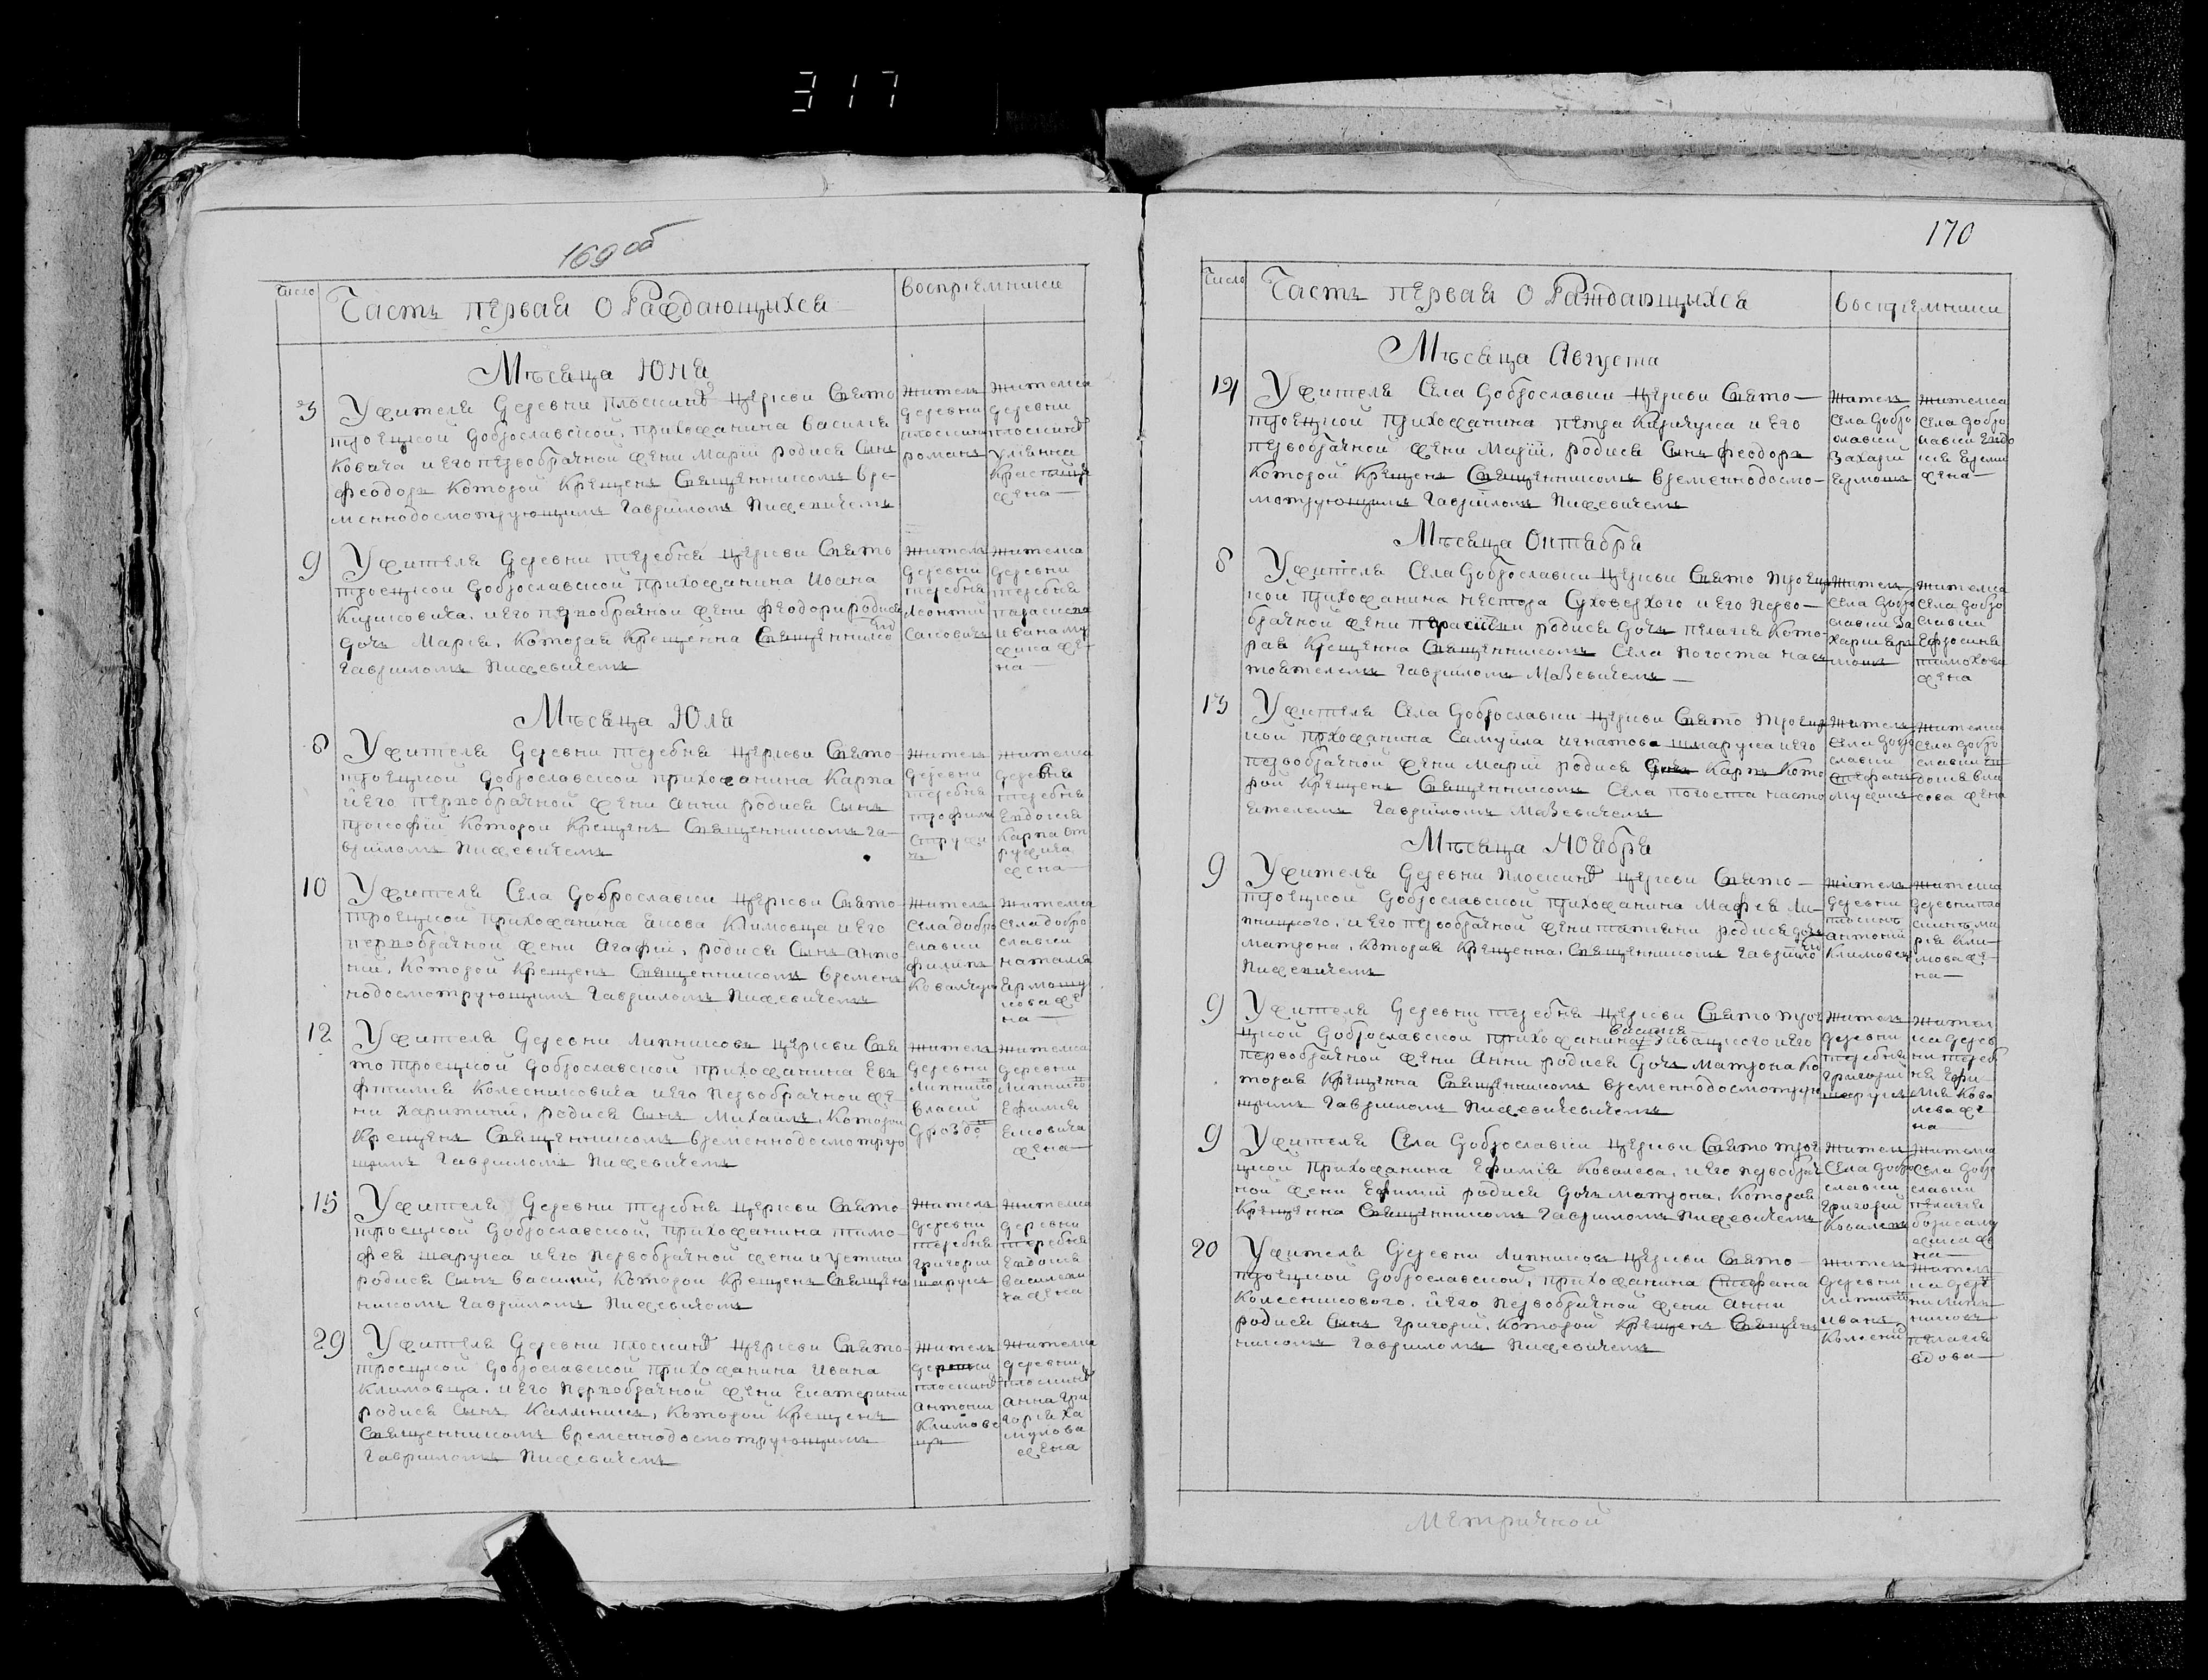 317
169 об
Число
Часть первая О Раждающыхся
Воспріемники
Мѣсяца Юня
3
У жителя Деревни плоскинь церкви Свято
троецкой Доброславской, прихожанина Василія
Ковача и Его первобрачной жени Маріи родися Сынъ
Феодоръ Которой Крещенъ Священникомъ вре-
меннодосмотрующимъ Гавріиломъ Пиджевичемъ
Житель
Деревни
плоскинь
романъ
Жителка
Деревни
плоскинь
Улянна
жена
9
У жителя Деревни теребня церкви Свято
троецкой Доброславской Прихожанина Ивана
и Его первобрачной жени Феодори родися
Дочь Марія, Которая Крещенна Священнико
Гавріиломъ Пиджевичемъ
Житель
Деревни
теребня
Леонтій
Саковичъ
Жителка
Деревни
теребня
Параскева
Ивана Му
жика же-
на
Мѣсяца Юля
8
У жителя Деревни теребня церкви Свято
троецкой Доброславской прихожанина Карпа
и Его первобрачной жени Анни родися Сынъ
Прокофій Которои Крещенъ Священникомъ Га-
вріиломъ Пиджевичемъ
Житель
Деревни
теребня
трофимъ
Жителка
Деревни
теребня
Евдокія
Карпа
жена
10
У жителя Села Доброславки церкви Свято-
троецкой прихожанина Якова Климовца и Его
первобрачной жени Агафіи, родися Сынъ Анто
ній, Которой Крещенъ Священникомъ времен
нодосмотрующимъ Гавріиломъ Пиджевичемъ
Житель
Села добро
славки
филипъ
Ковалчукъ
Жителка
Села добро
славки
наталія
Ермошу
кова же
на
12
У жителя Деревни Липниковъ церкви Свя
то троецкой Доброславской прихожанина Ев
фтилія Колесниковича и Его Первобрачной же
ни Харитини, родися Сынъ Михаилъ, Которои
Крещенъ Священникомъ временнодосмотрую
щимъ Гавріиломъ Пиджевичемъ
Житель
Деревни
Липнико
Власій
Дроздо
Жителка
Деревни
Липнико
Ефимія
жена
15
У жителя Деревни теребня церкви Свято-
троецкой Доброславской, прихожанина тимо-
фея шарука и Его первобрачной жени иустини
родися Сынъ Василій, Которои Крещенъ Священ
никомъ Гавріиломъ Пиджевичемъ
Житель
Деревни
теребня
григорій
шарукъ
Жителка
Деревни
теребня
Евдокія
жена
29
У жителя Деревни плоскинь церкви Свято-
троецкой Доброславской прихожанина Ивана
Климовца, и Его первобрачной жени Екатерини
родися Сынъ Калинникъ, Которой Крещенъ
Священникомъ временнодосмотрующимъ
Гавріиломъ Пиджевичемъ
Житель
Деревни
плоскинь
Антоніи
Климове
цъ
Жителка
Деревни
плоскинь
Анна Гри
горія Ха
мулова
жена
170
Число
Часть первая О Раждающыхся
Воспріемники
Мѣсяца Августа
14
У жителя Села Доброславки церкви Свято-
троецкой Прихожанина петра Киричука и Его
первобрачной жени Маріи, родися Сынъ Феодоръ
Которой Крещенъ Священникомъ временнодосмо-
мотрующимъ Гавріиломъ Пиджевичемъ
Житель
Села Добро
славки
Захарій
Жителка
Села Добро
славки Евдо
кія
жена
Мѣсяца Октабря
8
У жителя Села Доброславки церкви Свято троец
кой прихожанина нестора Суховерхого и Его перво-
брачной жени параскеви родися Дочь пелагія Кото-
рая Крещенна Священникомъ Села погоста нас
тоятелемъ Гавріиломъ Мазевичемъ
Житель
Села Добро
славки За
харій
Жителка
Села Добро
славки
Ефросинія
тимохова
жена
13
У жителя Села Доброславки церкви Свято троец
кой прихожанина Самуила игнатова шмарука и Его
первобрачной жени Маріи родися Сынъ Карпъ Кото
рой Крещенъ Священникомъ Села погоста насто
ятелемъ Гавріиломъ Мазевичемъ
Житель
Села Добро
славки
Стефанъ
Жителка
Села Добро
славки Ев
докія вла
сова жена
Мѣсяца Ноября
9
У жителя Деревни Плоскинь церкви Свято-
троецкой Доброславской прихожанина Мафея Ли-
пницкого, и Его первобрачной жени татіяни родися дочь
матрона, Которая Крещенна, Священникомъ Гавріило
Пиджевичемъ
Житель
Деревни
плоскинь
Антоній
Климовец
Жителка
Деревни пло
скинь ма
рія Кли-
мова же-
на
9
У жителя Деревни теребня церкви Свято трое
василія
цкой Доброславской прихожанина и Его
первобрачной жени Анни родися Дочь Матрона Ко
торая Крещенна Священникомъ временнодосмотрую
щимъ Гавріиломъ Пиджевичевичемъ
Житель
Деревни
теребня
григорій
шарукъ
Жител
ка дерев
ни тереб
ня Ефи-
мія Кова
лева же
на
9
У жителя Села Доброславки церкви Свято трое
цкой Прихожанина Ефимія Ковалева, и Его первобрач
ной жени Ефиміи родися Дочь матрона, Которая
Крещенна Священникомъ Гавріиломъ Пиджевичемъ
Житель
Села добро
славки
Григорій
Ковалевъ
Жителка
Села добро
славки
пелагія
на
20
У жителя Деревни Липниковъ церкви Свято-
троецкой Доброславской, прихожанина Стефана
Колесникового, и Его Первобрачной жени Анни
родися Сынъ Григорій, Которой Крещенъ Священ
никомъ Гавріиломъ Пиджевичемъ
Житель
Деревни
липнико
иванъ
Колесни
Жител
ка дерев
ни Липъ-
никовъ
пелагія
вдова
Метричной